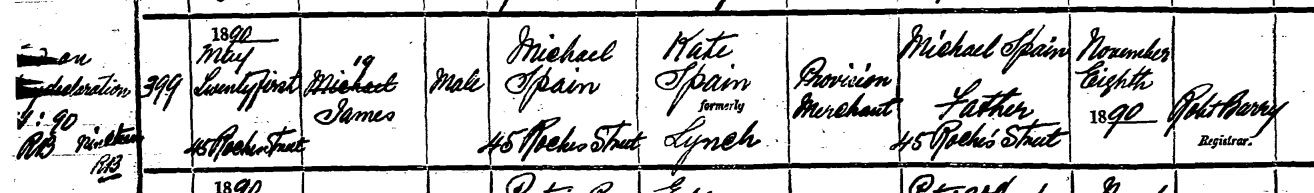 399
1890
May
Twenty first
45 Roches Street
19
Michael
James
Male
Michael
Spain
45 Roches Street
Kate
Spain
formerly
Lynch
Provision
Merchant
Michael Spain
Father
45 Roche's Street
November
Eighth
1890
Robt Barry
Registrar.
on
declaration
90
RB nineteen
RB
1890